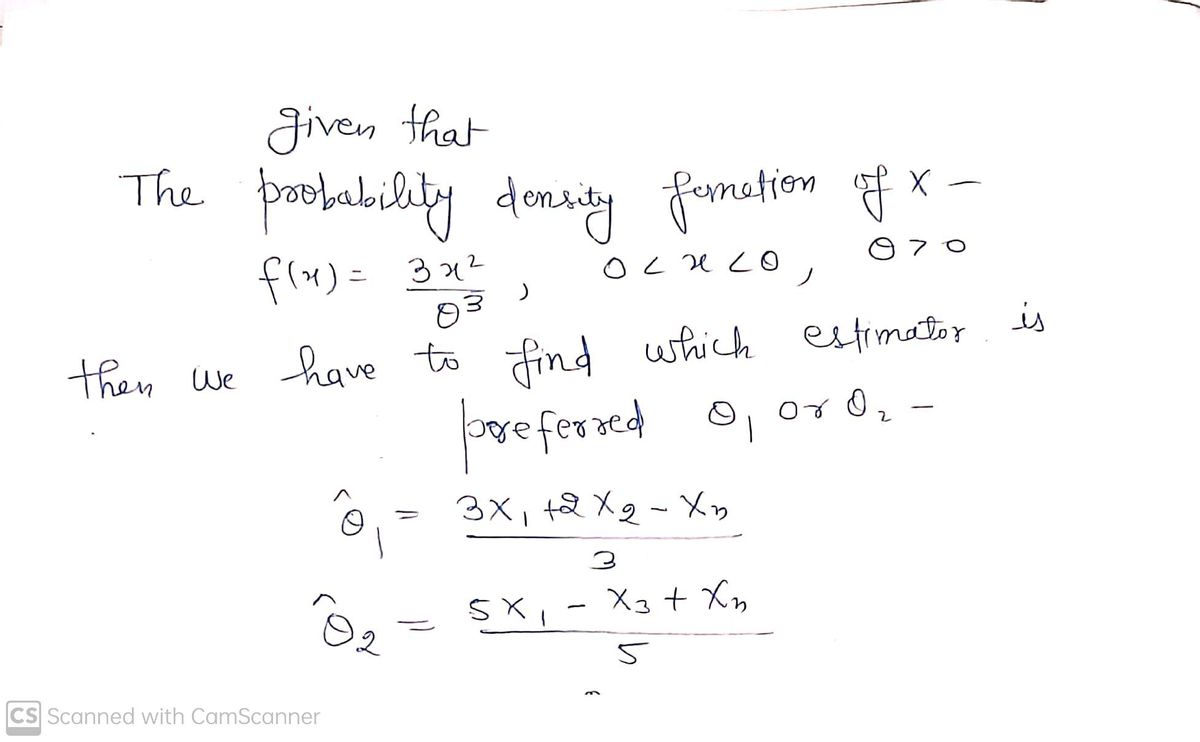 given that
The probability density function of X -
f(x) = 3x² / θ³ , 0 < x < θ , θ > 0
then we have to find which estimator is
preferred θ₁ or θ₂ -
θ̂₁ = 3X₁ + 2X₂ - Xₙ / 3
θ̂₂ = 5X₁ - X₃ + Xₙ / 5
CS Scanned with CamScanner